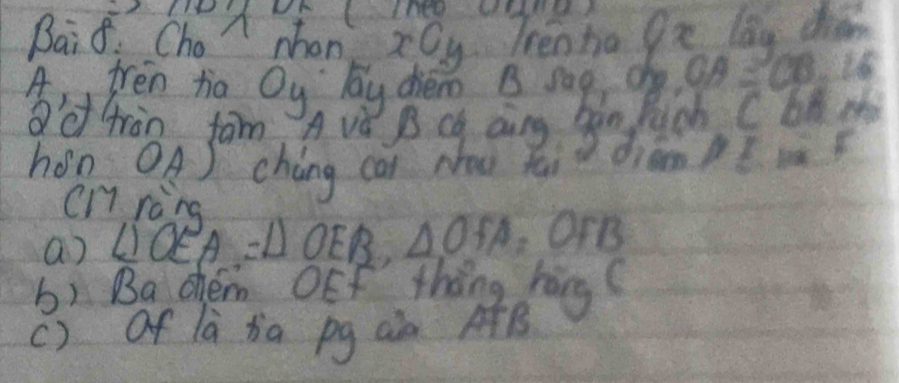 Bài 8: Cho nhọn xOy Trên tia Ox lấy điểm
A, trên tia Oy lấy điểm B sao cho OA = OB. Vẽ
2 đ tròn tâm A và B có cùng bán kính ( bk nhỏ
hơn OA) chúng cat nhau tại 2 điểm E và F
CM rằng
a) Δ OEA = Δ OEB, Δ OFA = OFB
b) Ba điểm OEF thẳng hàng
c) OF là tia pg của AFB